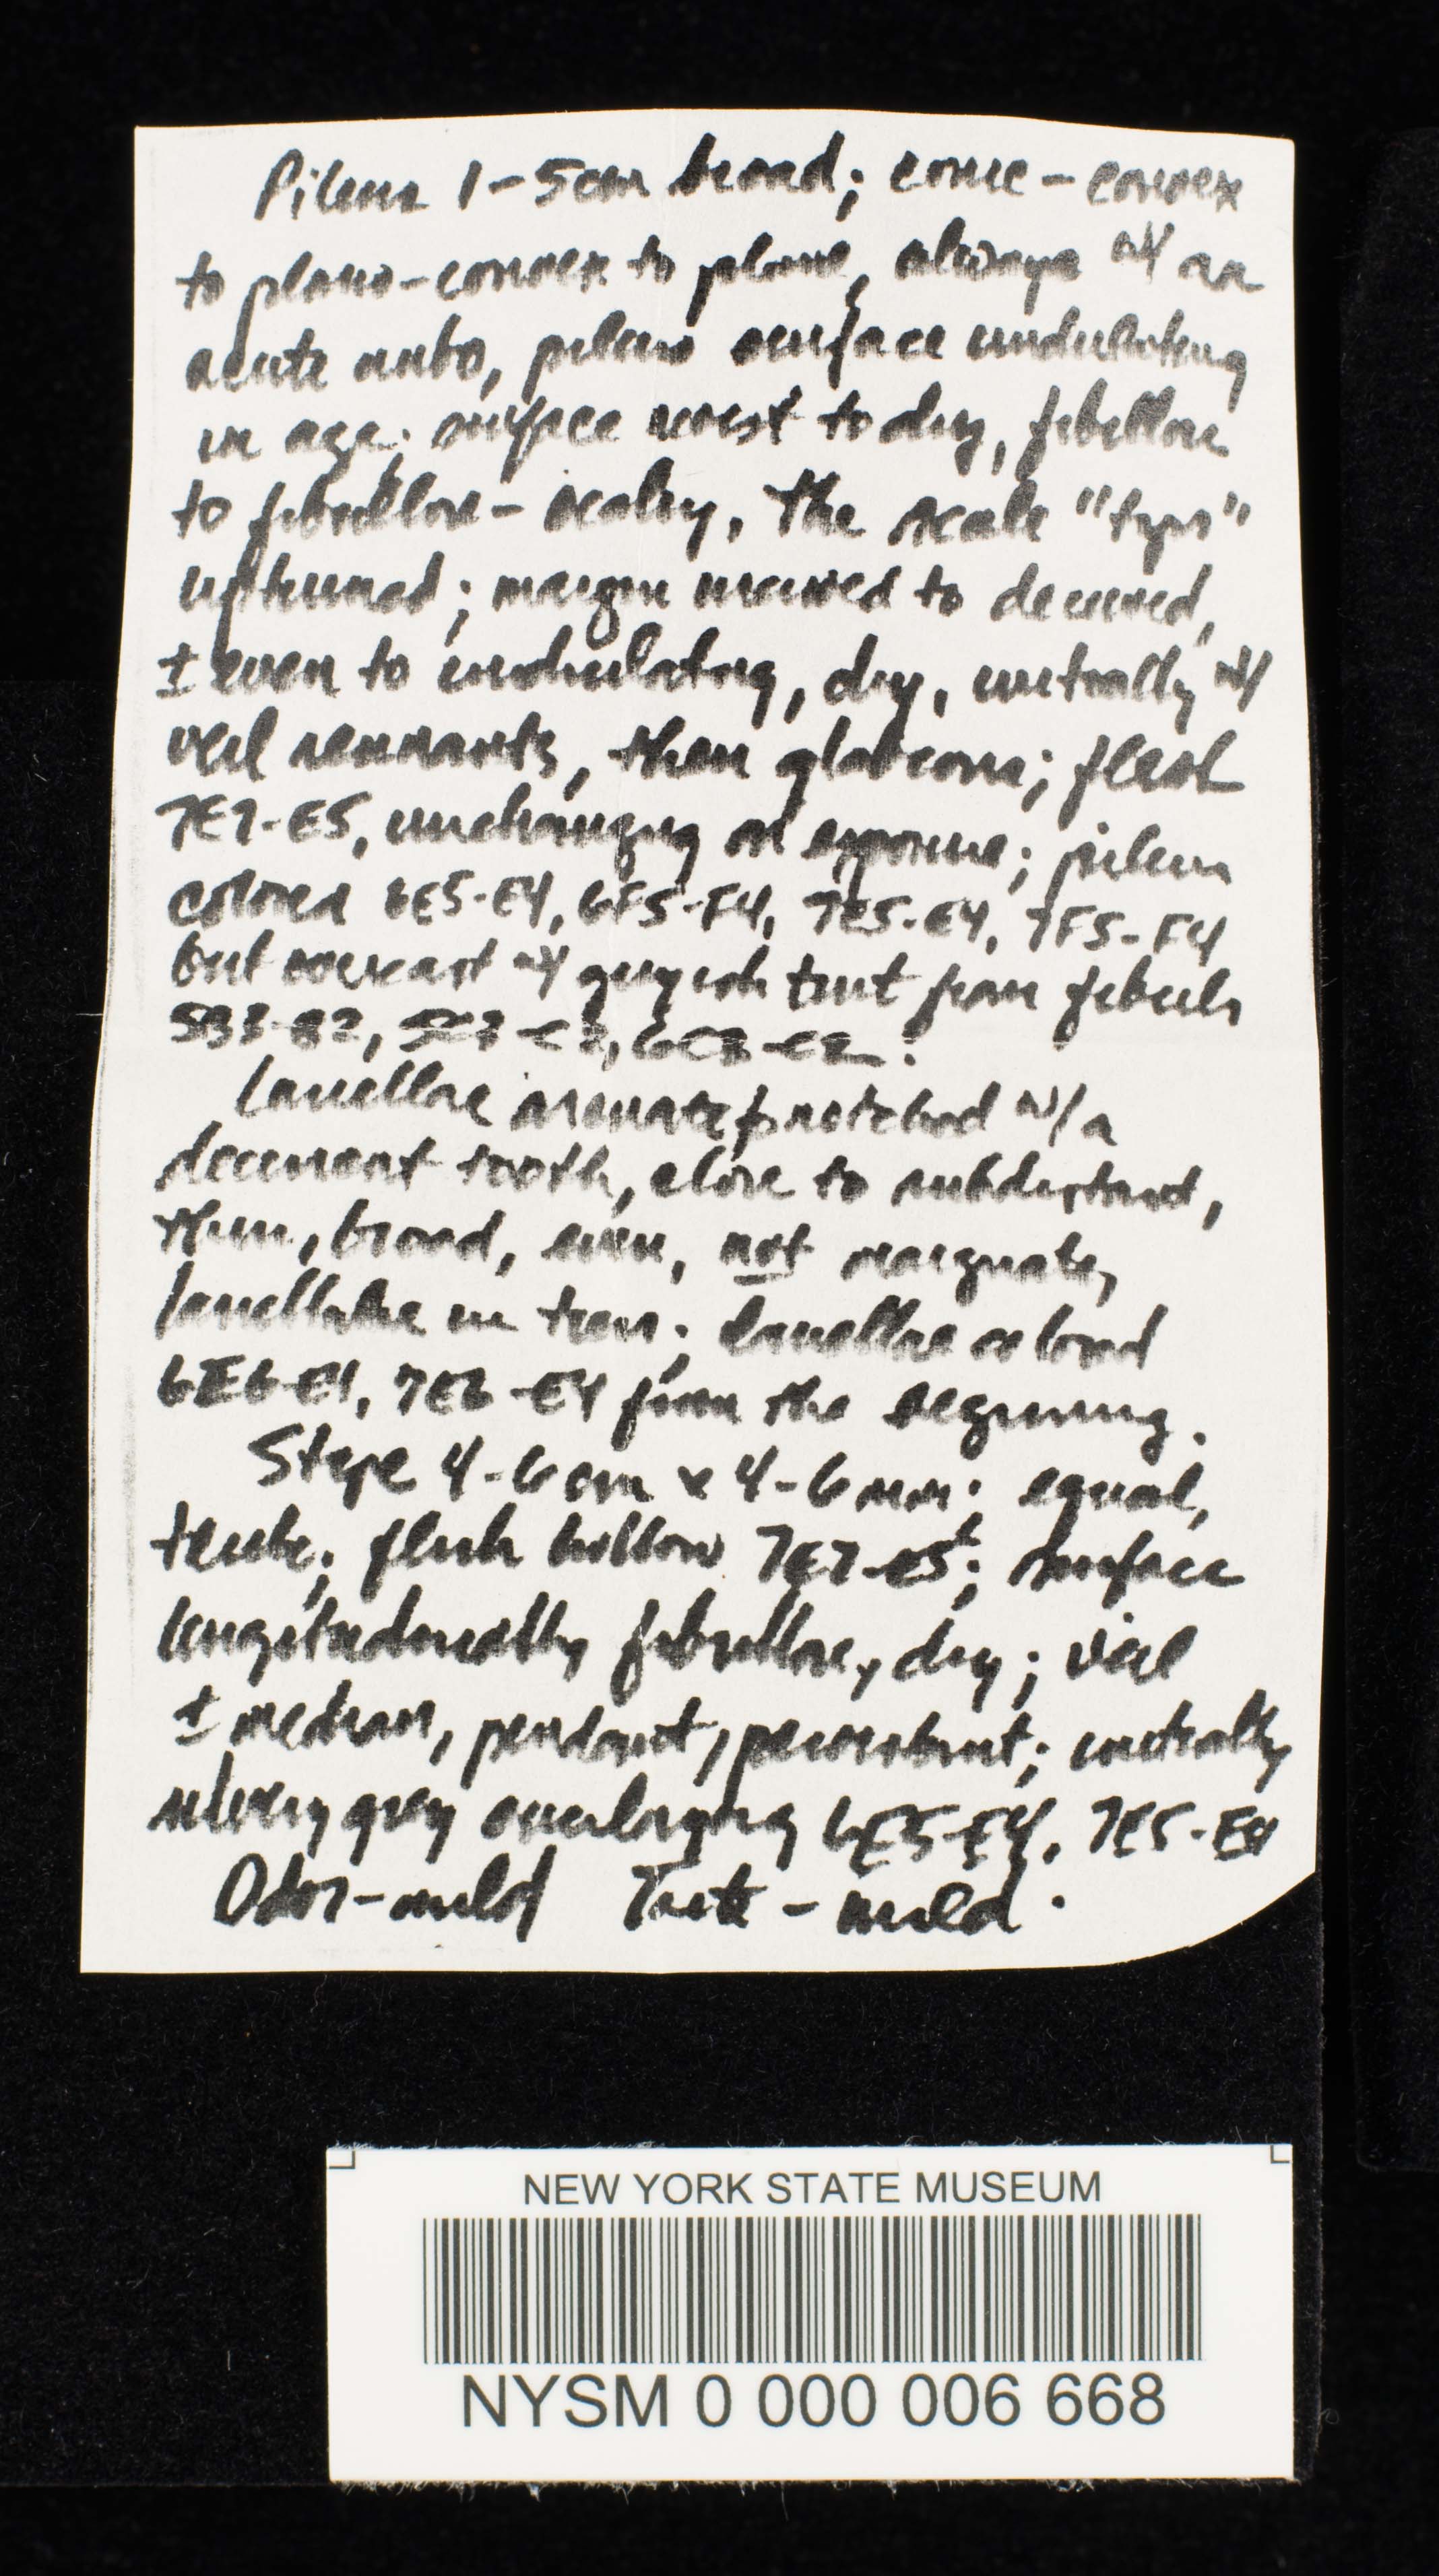 Pileus 1-5cm broad; conic-convex
to plano-convex to plane, always w/ an
acute umbo, pileus surface undulating
in age; surface moist to dry, fibrillose
to fibrillose-scaley, the scale "tips"
upturned; margin incurved to decurved,
± even to undulating, dry, initially w/
veil remnants, then glabrous; flesh
7E7-E5, unchanging on exposure; pileus
colored 6E5-E4, 6F5-F4, 7E5-E4, 7F5-F4
but overcast w/ greyish tint from fibrils
5B3-B2,
Lamellae arcuate notched w/ a
decurrent tooth, close to subdistant,
thin, broad, even, not marginate,
lamellulae in tiers; lamellae colored
6E6-E4, 7E6-E4 from the beginning.
Stipe 4-6cm x 4-6mm; equal,
terete; flesh hollow 7E7-E5; surface
longitudinally fibrillose, dry; veil
± median, pendant, persistent; initially
silvery grey overlaying 6E5-E4, 7E5-E4
Odor-mild Taste-mild.
NEW YORK STATE MUSEUM
NYSM 0 000 006 668